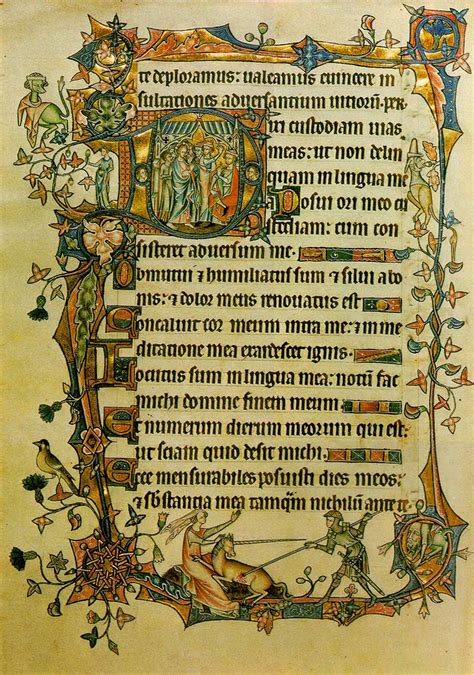 te deploramus: ualeamus euincere in
sultationes aduersantium uitioru̅. per
Dixi custodiam uias
meas: ut non delin
quam in lingua me
Posui ori meo cu
stodiam: cum con
sisteret aduersum me.
Obmutui ⁊ humiliatus sum ⁊ silui a bo
nis: ⁊ dolor meus renouatus est
Concaluit cor meum intra me: ⁊ in me
ditatione mea exardescet ignis.
Locutus sum in lingua mea: notu̅ fac
michi domine finem meum
Et numerum dierum meorum qui est:
ut sciam quid desit michi
Ecce mensurabiles posuisti dies meos:
⁊ substantia mea tamq̅m nichilu̅ ante te